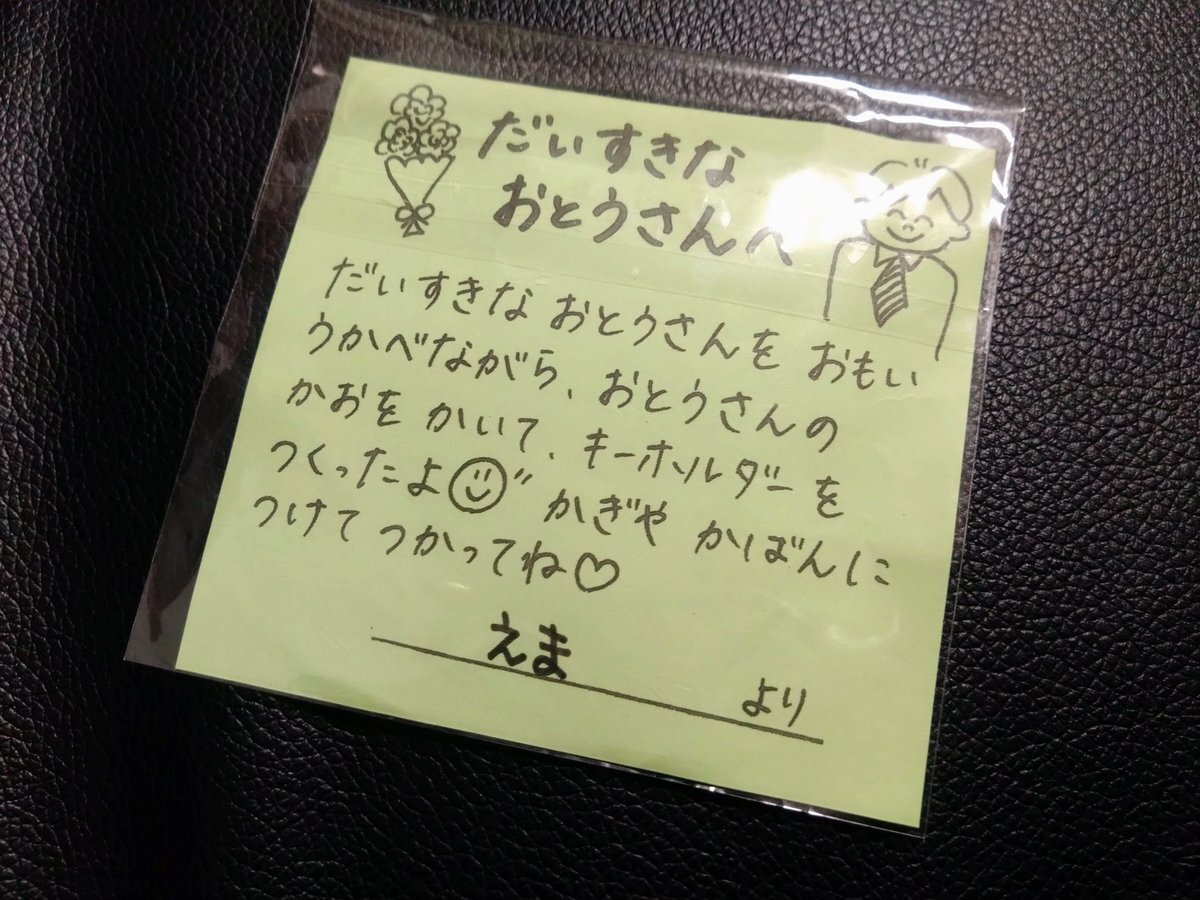 だいすきな
おとうさんへ
だいすきな おとうさんを おもい
うかべながら、おとうさんの
かおを かいて、キーホルダーを
つくったよ☺" かぎや かばんに
つけて つかってね♡
えま
より